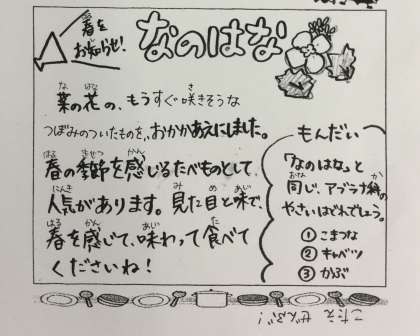 春を
お知らせ！
なのはな
菜の花の、もうすぐ咲きそうな
つぼみのついたものを、おかかあえにしました。
春の季節を感じるたべものとして
人気があります。見た目と味で、
春を感じて、味わって食べて
くださいね！
もんだい
「なのはな」と
同じ、アブラナ科の
やさいはどれでしょう。
① こまつな
② キャベツ
③ かぶ
こたえ ぜんぶ！